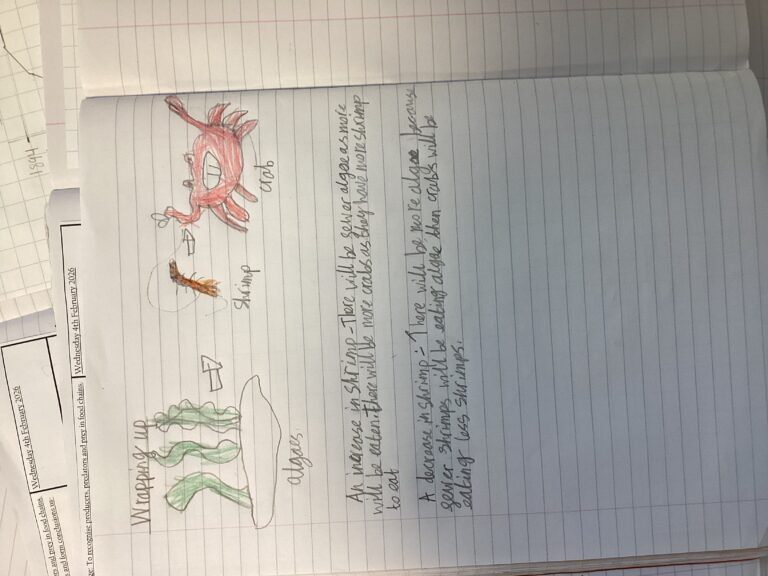 1894
Wednesday 4th February 2026
ers and prey in food chains.
and form conclusions
Wednesday 4th February 2026
ge: To recognise producers, predators and prey in food chains.
Wrapping up
algaes
shrimp
crab
An increase in shrimp - There will be fewer algae as more
will be eaten. there will be more crabs as they have more shrimp
to eat
A decrease in shrimp :- There will be more algae because
fewer shrimps will be eating algae then crabs will be
eating less shrimps.